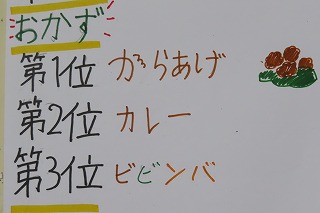 おかず
第1位 からあげ
第2位 カレー
第3位 ビビンバ